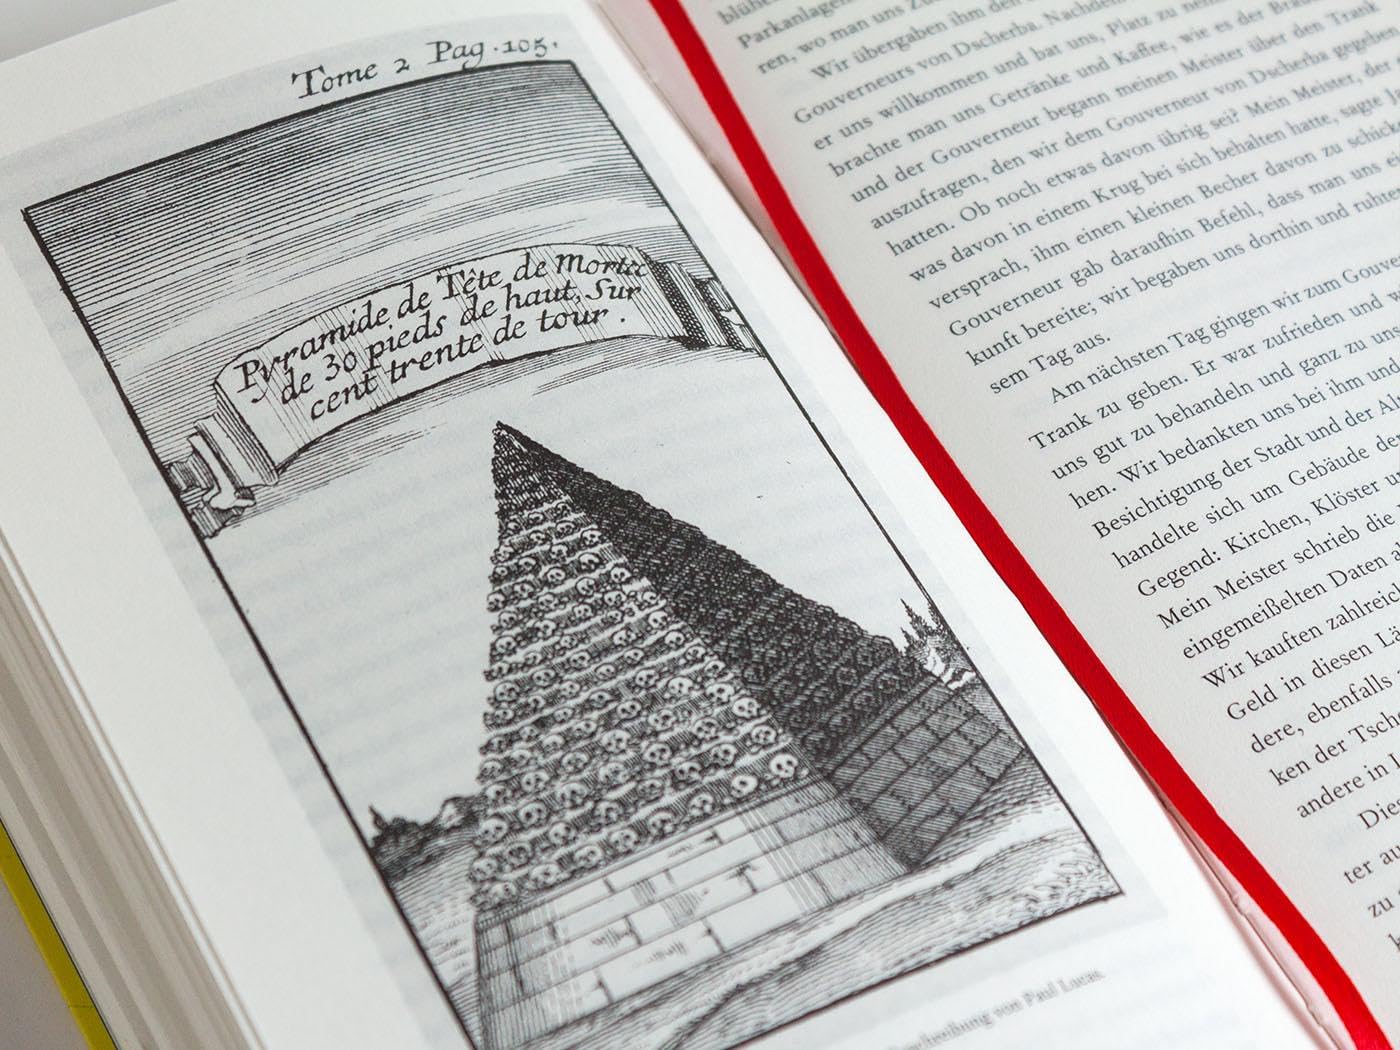 Tome 2 Pag. 105.
Pyramide de Tête de Morte
de 30 pieds de haut, Sur
cent trente de tour.
von Paul Lucas.
Parkanlagen
ren, wo man uns
Wir übergaben ihm den
Gouverneurs von Dscherba. Nachdem
er uns willkommen und bat uns, Platz zu
brachte man uns Getränke und Kaffee, wie es der
und der Gouverneur begann meinen Meister über den Trank
auszufragen, den wir dem Gouverneur von Dscherba gegeben
hatten. Ob noch etwas davon übrig sei? Mein Meister, der
was davon in einem Krug bei sich behalten hatte, sagte
versprach, ihm einen kleinen Becher davon zu
Gouverneur gab daraufhin Befehl, dass man uns
kunft bereite; wir begaben uns dorthin und
sem Tag aus.
Am nächsten Tag gingen wir zum
Trank zu geben. Er war zufrieden und
uns gut zu behandeln und ganz zu
hen. Wir bedankten uns bei ihm
Besichtigung der Stadt und der
handelte sich um Gebäude
Gegend: Kirchen, Klöster
Mein Meister schrieb die
eingemeißelten Daten
Wir kauften
Geld in diesen
dere, ebenfalls
ken der
andere in
ter
zu